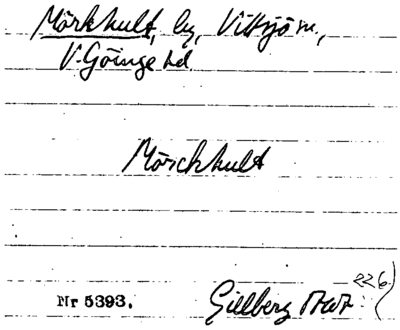 Mörkhult, by, Vittsjö sn.,
V. Göinge hd.
Mörckhult
Nr 5393. Gillberg 226